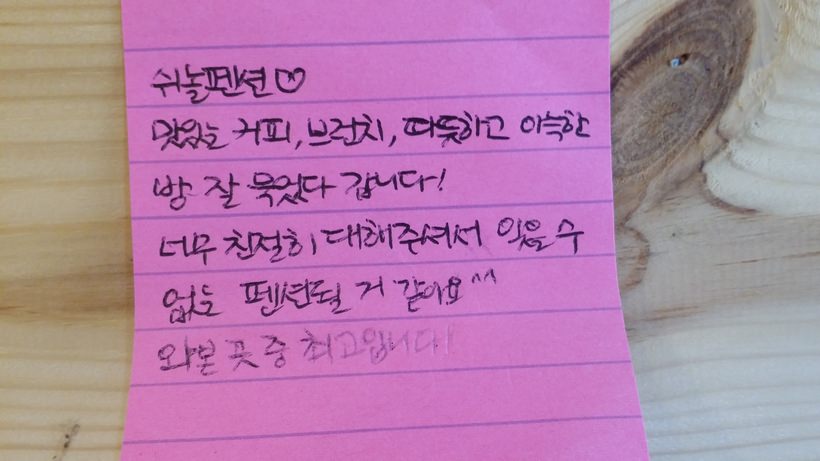 쉬놀펜션♡
맛있는 커피, 브런치, 따뜻하고 아늑한
방 잘 묵었다 갑니다!
너무 친절히 대해주셔서 잊을 수
없는 펜션될 거 같아요^^
와본 곳 중 최고입니다!